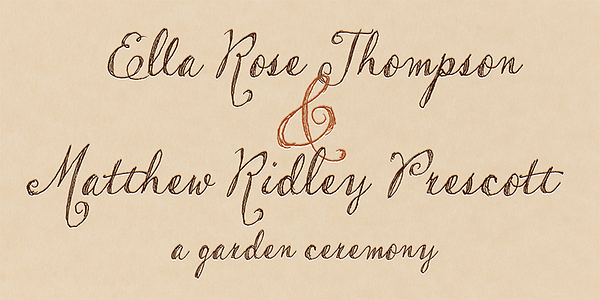 Ella Rose Thompson
&
Matthew Ridley Prescott
a garden ceremony